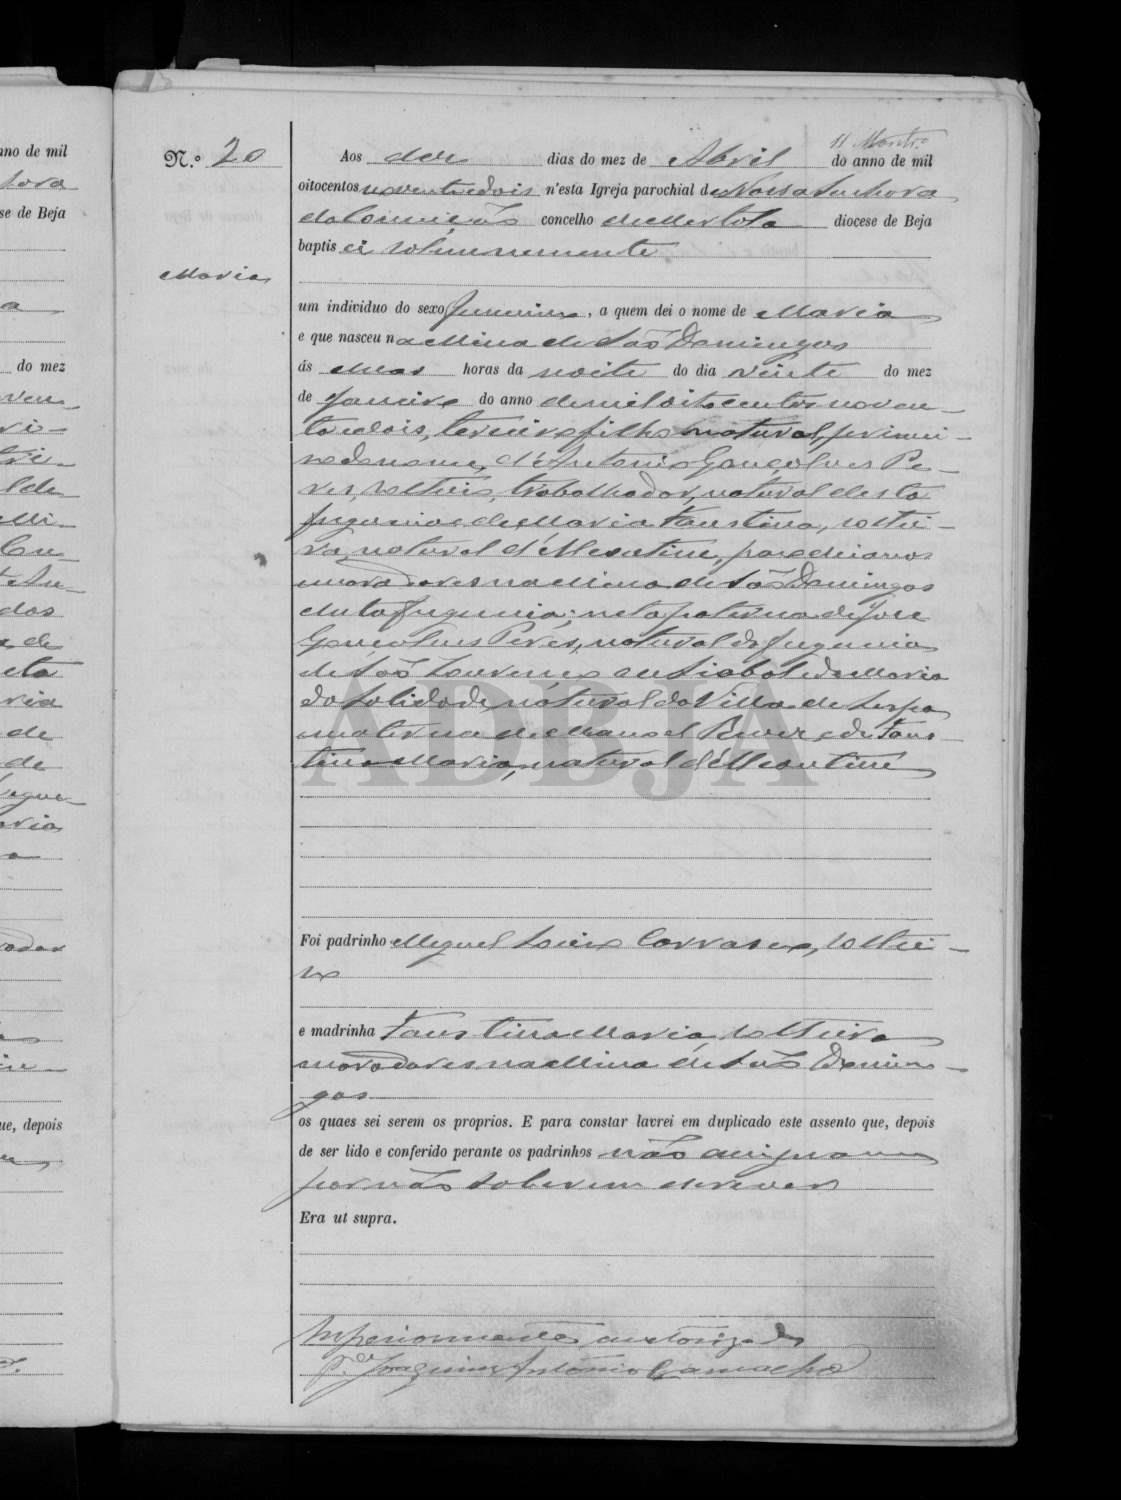 N.º 20
Maria
Aos dez dias do mez de Abril do anno de mil
oitocentos noventa e dois n'esta Igreja parochial de Nossa Senhora
da Conceição concelho de Mertola diocese de Beja
baptisei solemnemente
um individuo do sexo femenino, a quem dei o nome de Maria
e que nasceu na Mina de São Domingos
ás duas horas da noite do dia vinte do mez
de Janeiro do anno de mil oitocentos noven-
ta e dois, terceiro filho natural, primei-
ro do nome, d'Antonio Gonçalves Pe-
res, solteiro, trabalhador, natural desta
freguesia e de Maria Faustina, soltei-
ra, natural d'Alcoutim, parochianos
moradores na Mina de São Domingos
desta freguesia; neta paterna de José
Gonçalves Peres, natural da freguesia
de São Lourenço e de Maria
da Solidade, natural da Villa de Serpa
materna de Manoel e de Faus-
tina Maria, natural d'Alcoutim
Foi padrinho Miguel Carrasco, soltei-
ro
e madrinha Faustina Maria, solteira
moradores na Mina de São Domin-
gos
os quaes sei serem os proprios. E para constar lavrei em duplicado este assento que, depois
de ser lido e conferido perante os padrinhos não assignaram
por não saberem escrever
Era ut supra.
Superiormente auctorizado
P.e Joaquim Antonio Carvalho
ADBJA
nno de mil
se de Beja
do mez
ue, depois